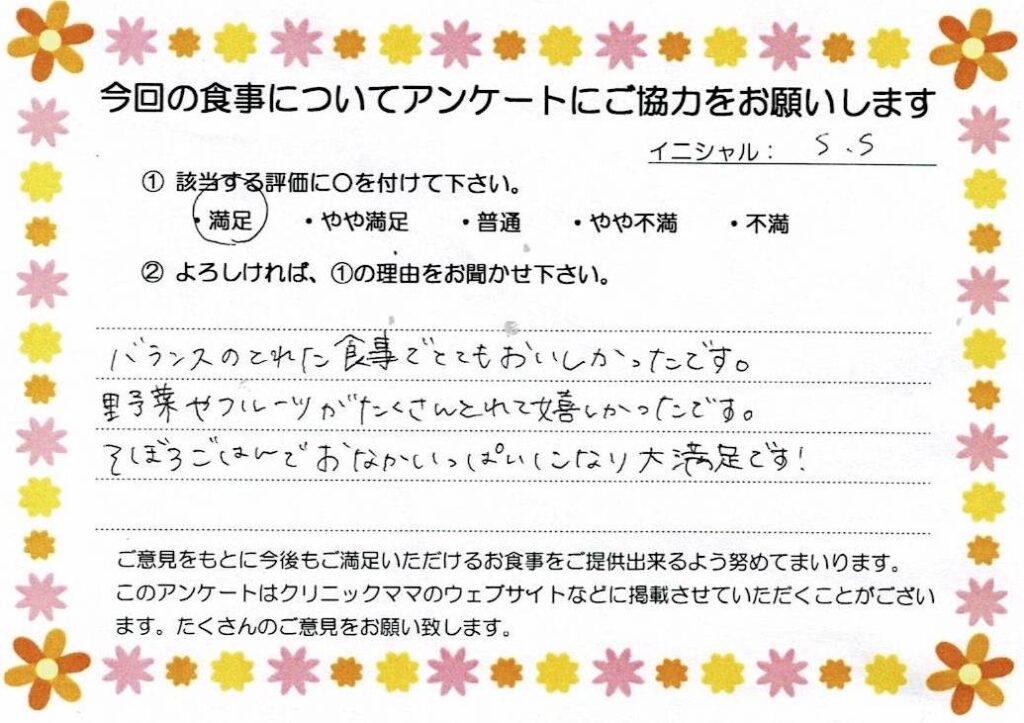 今回の食事についてアンケートにご協力をお願いします
イニシャル： S.S
① 該当する評価に〇を付けて下さい。
・満足 ・やや満足 ・普通 ・やや不満 ・不満
② よろしければ、①の理由をお聞かせ下さい。
バランスのとれた食事でとてもおいしかったです。
野菜やフルーツがたくさんとれて嬉しかったです。
そぼろごはんでおなかいっぱいになり大満足です!
ご意見をもとに今後もご満足いただけるお食事をご提供出来るよう努めてまいります。
このアンケートはクリニックママのウェブサイトなどに掲載させていただくことがござい
ます。たくさんのご意見をお願い致します。